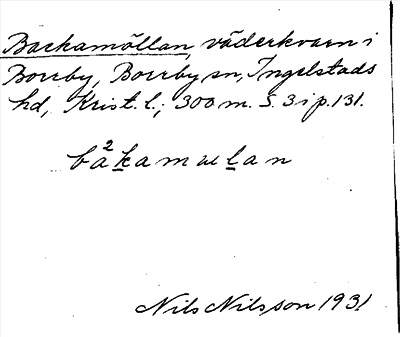 Backamöllan, väderkvarn i
Borrby, Borrby sn, Ingelstads
hd, Krist. l.; 300 m. S. 3 i p. 131.
bà²kamœlan
Nils Nilsson 1931